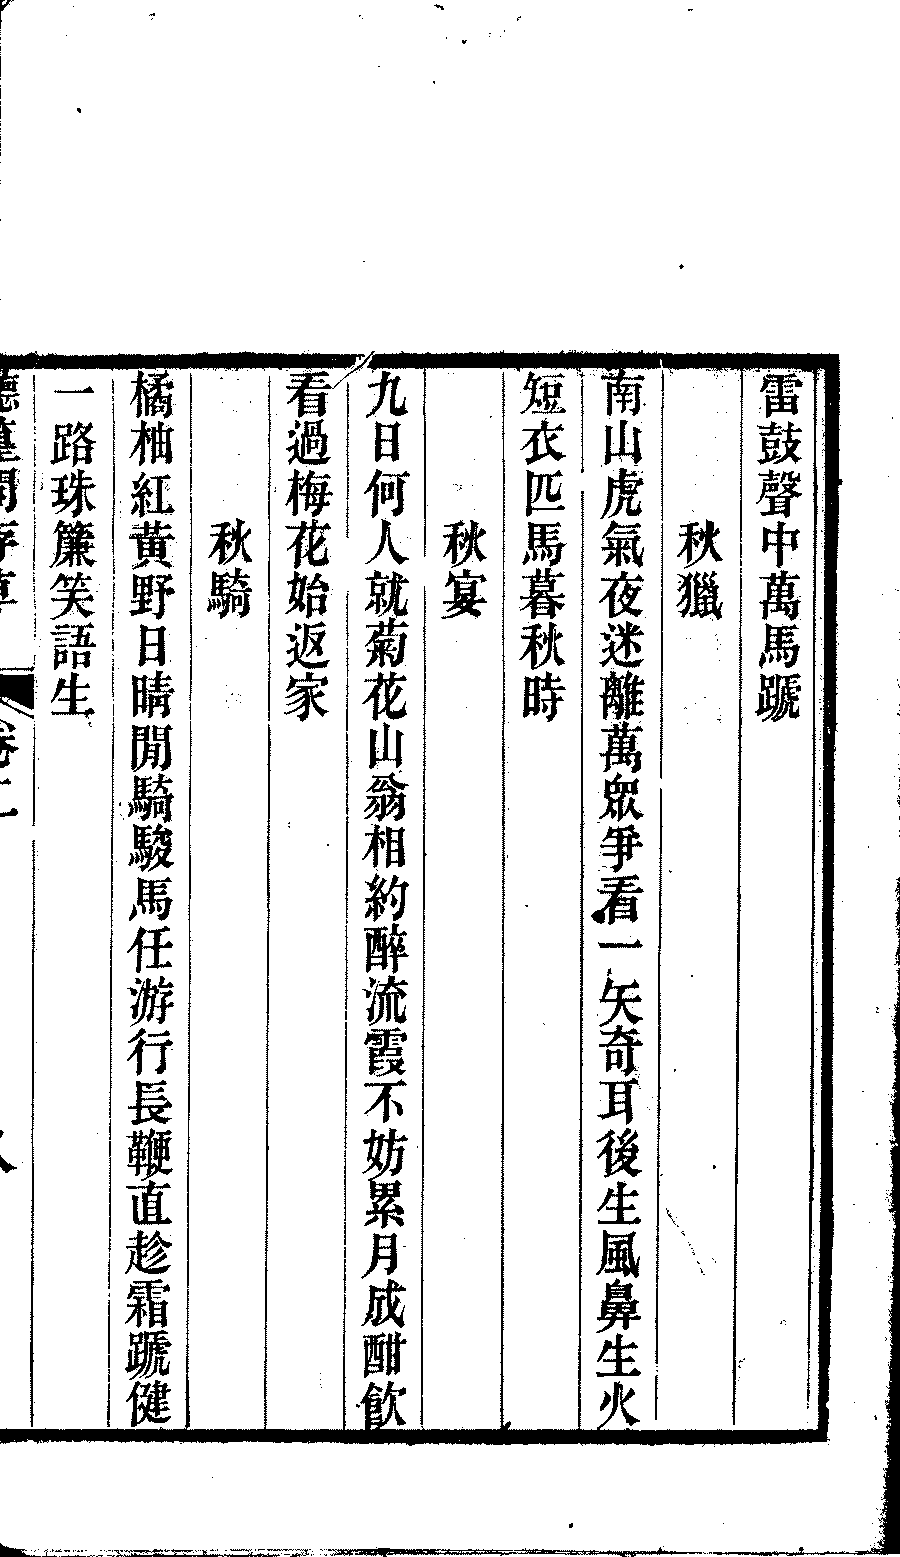 雷鼓聲中萬馬蹏
秋獵
南山虎氣夜迷離萬眾爭看一矢奇耳後生風鼻生火
短衣匹馬暮秋時
秋宴
九日何人就菊花山翁相約醉流霞不妨累月成酣飲
看過梅花始返家
秋騎
橘柚紅黃野日晴閒騎駿馬任游行長鞭直趁霜蹏健
一路珠簾笑語生
卷二